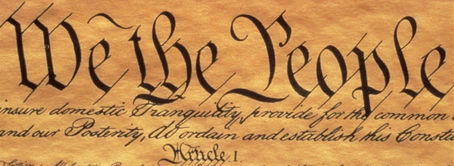 We the People
insure domestic Tranquility, provide for the common
and our Posterity, do ordain and establish this Constit
Article I